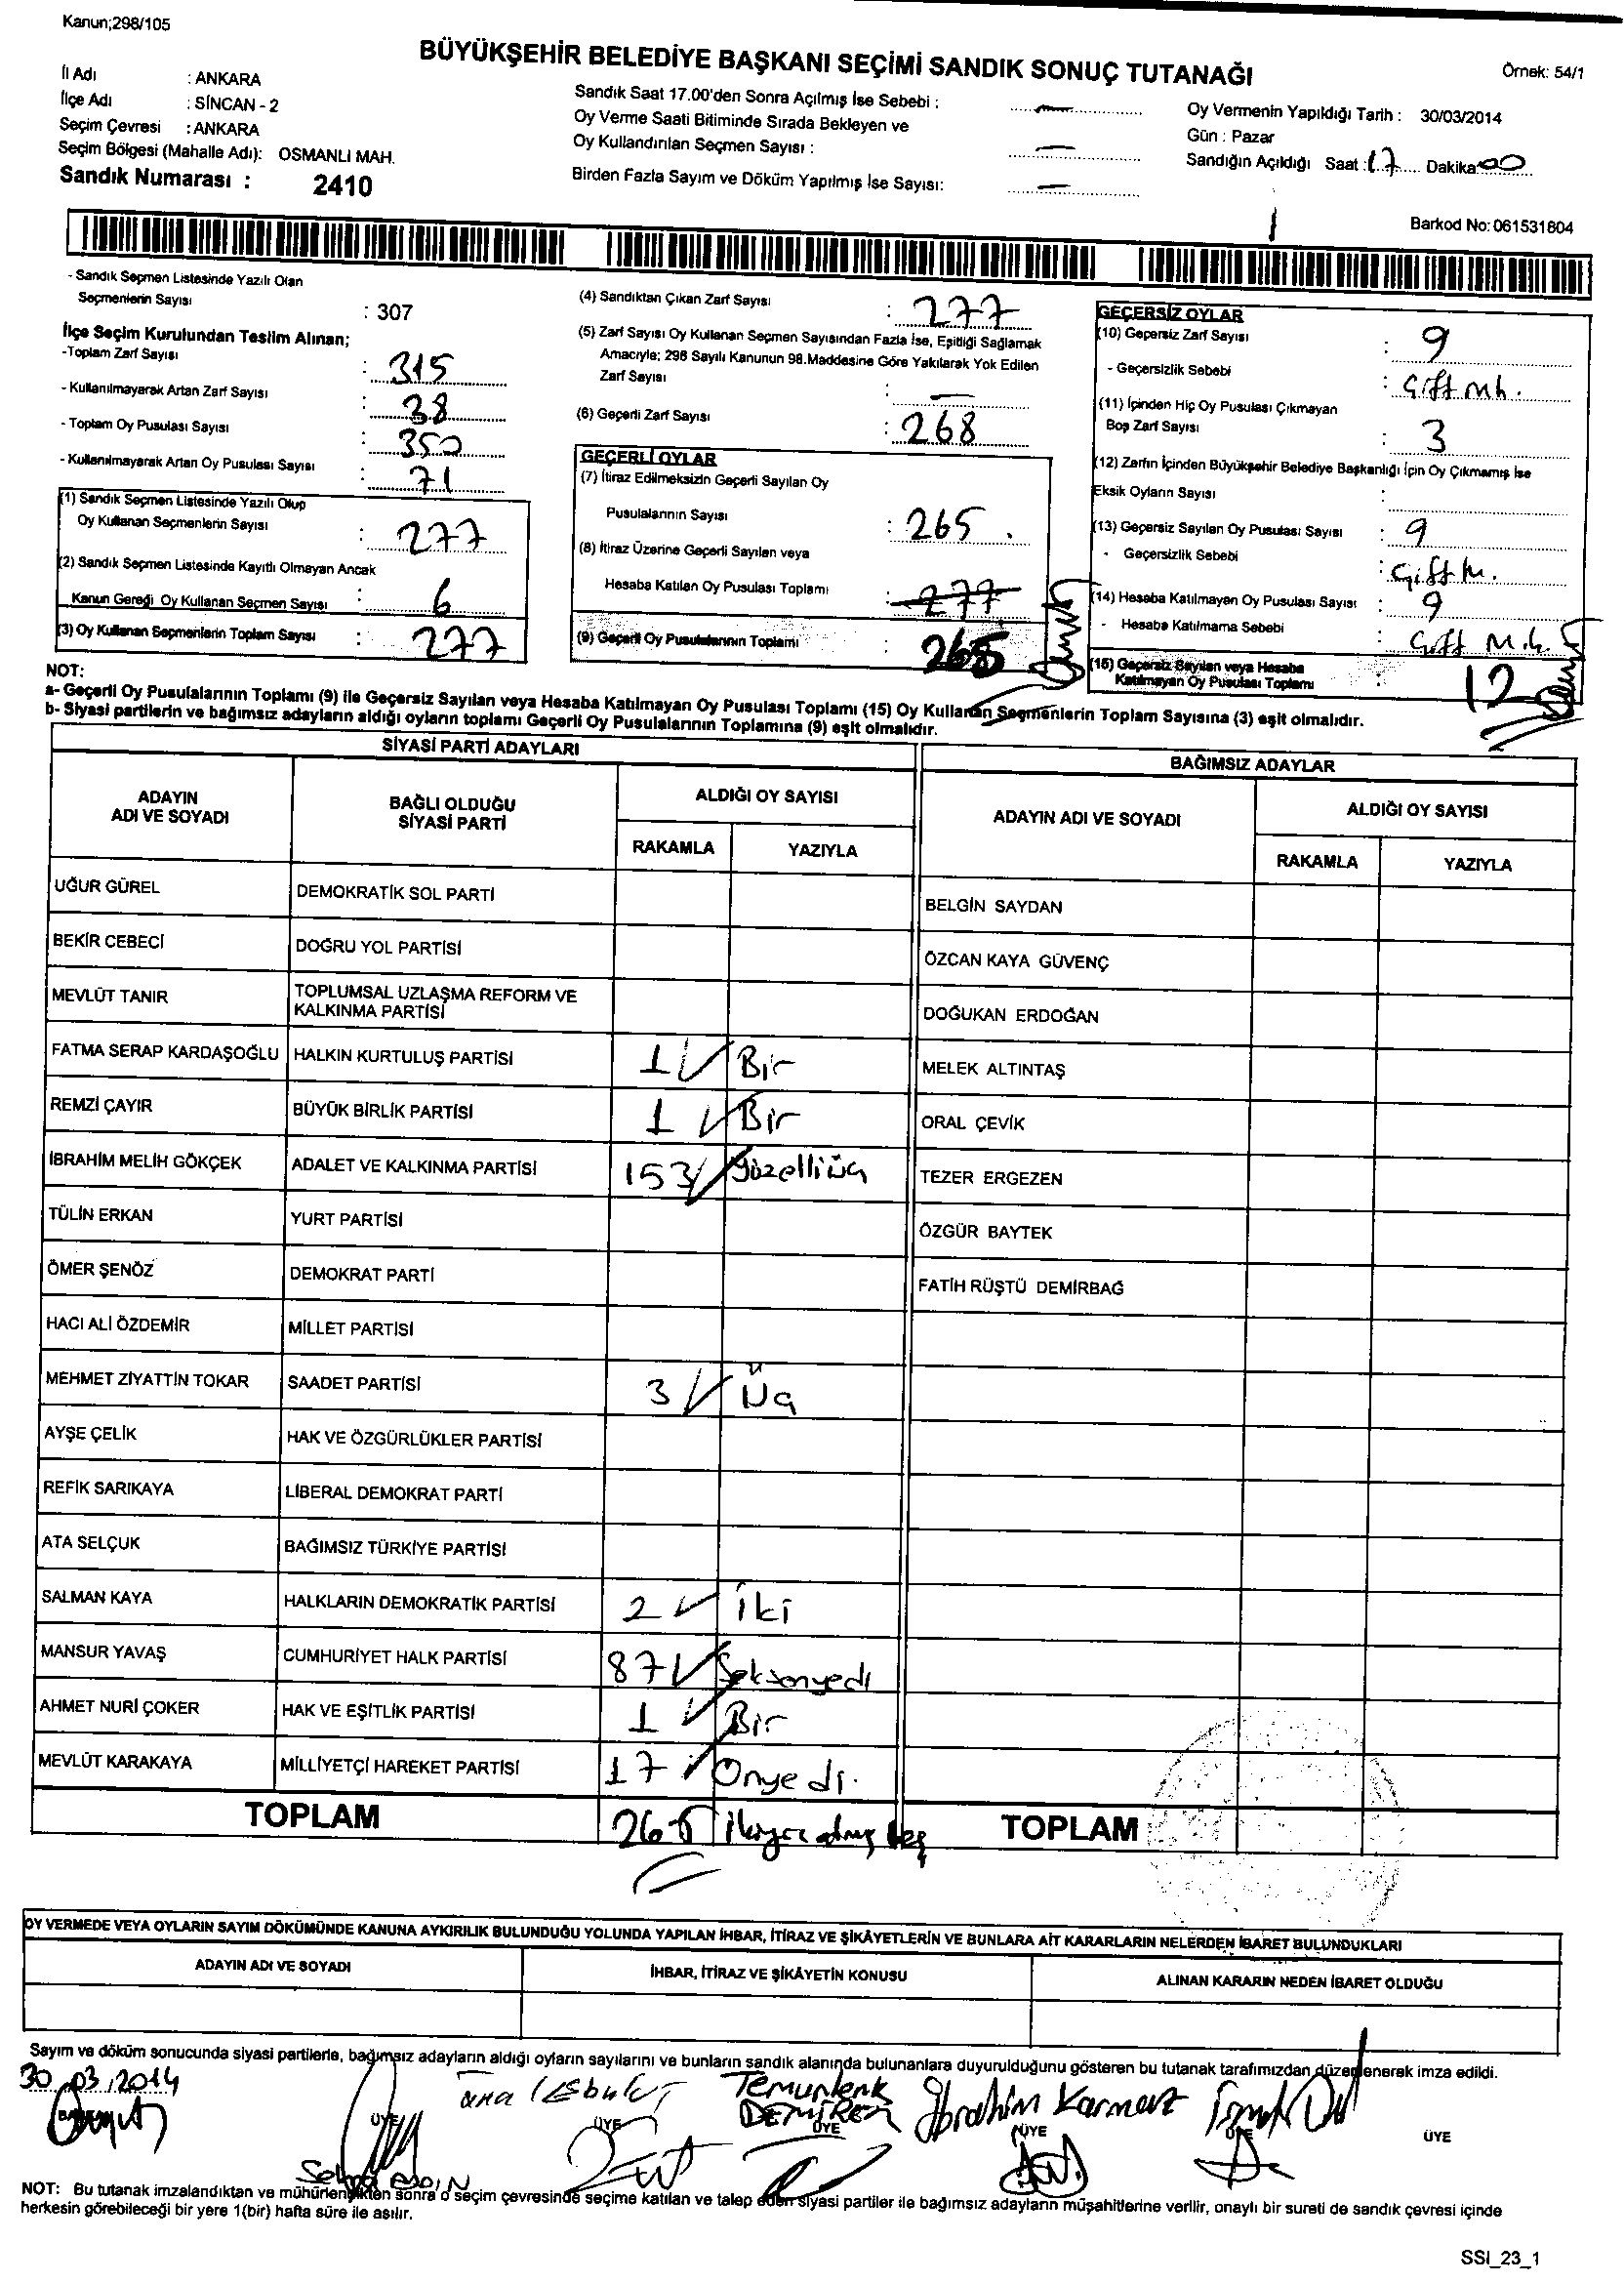 Kanun;298/105
BÜYÜKŞEHİR BELEDİYE BAŞKANI SEÇİMİ SANDIK SONUÇ TUTANAĞI
Örnek: 54/1
İl Adı : ANKARA
İlçe Adı : SİNCAN - 2
Seçim Çevresi : ANKARA
Seçim Bölgesi (Mahalle Adı): OSMANLI MAH.
Sandık Numarası : 2410
Sandık Saat 17.00'den Sonra Açılmış İse Sebebi : —
Oy Verme Saati Bitiminde Sırada Bekleyen ve
Oy Kullandırılan Seçmen Sayısı : —
Birden Fazla Sayım ve Döküm Yapılmış İse Sayısı: —
Oy Vermenin Yapıldığı Tarih : 30/03/2014
Gün : Pazar
Sandığın Açıldığı Saat : 17 Dakika: 00
Barkod No: 061531804
- Sandık Seçmen Listesinde Yazılı Olan
Seçmenlerin Sayısı : 307
İlçe Seçim Kurulundan Teslim Alınan;
-Toplam Zarf Sayısı : 315
- Kullanılmayarak Artan Zarf Sayısı : 38
- Toplam Oy Pusulası Sayısı : 350
- Kullanılmayarak Artan Oy Pusulası Sayısı : 71
(1) Sandık Seçmen Listesinde Yazılı Olup
Oy Kullanan Seçmenlerin Sayısı : 277
(2) Sandık Seçmen Listesinde Kayıtlı Olmayan Ancak
Kanun Gereği Oy Kullanan Seçmen Sayısı : 6
(3) Oy Kullanan Seçmenlerin Toplam Sayısı : 277
(4) Sandıktan Çıkan Zarf Sayısı : 277
(5) Zarf Sayısı Oy Kullanan Seçmen Sayısından Fazla İse, Eşitliği Sağlamak
Amacıyla; 298 Sayılı Kanunun 98.Maddesine Göre Yakılarak Yok Edilen
Zarf Sayısı : —
(6) Geçerli Zarf Sayısı : 268
GEÇERLİ OYLAR
(7) İtiraz Edilmeksizin Geçerli Sayılan Oy
Pusulalarının Sayısı : 265
(8) İtiraz Üzerine Geçerli Sayılan veya
Hesaba Katılan Oy Pusulası Toplamı : 277
(9) Geçerli Oy Pusulalarının Toplamı : 265
GEÇERSİZ OYLAR
(10) Geçersiz Zarf Sayısı : 9
- Geçersizlik Sebebi : Çift Mh.
(11) İçinden Hiç Oy Pusulası Çıkmayan
Boş Zarf Sayısı : 3
(12) Zarfın İçinden Büyükşehir Belediye Başkanlığı İçin Oy Çıkmamış İse
Eksik Oyların Sayısı :
(13) Geçersiz Sayılan Oy Pusulası Sayısı : 9
- Geçersizlik Sebebi : Çift M.
(14) Hesaba Katılmayan Oy Pusulası Sayısı : 9
- Hesaba Katılmama Sebebi : Çift M.h.
(15) Geçersiz Sayılan veya Hesaba
Katılmayan Oy Pusulası Toplamı 12
NOT:
a- Geçerli Oy Pusulalarının Toplamı (9) ile Geçersiz Sayılan veya Hesaba Katılmayan Oy Pusulası Toplamı (15) Oy Kullanan Seçmenlerin Toplam Sayısına (3) eşit olmalıdır.
b- Siyasi partilerin ve bağımsız adayların aldığı oyların toplamı Geçerli Oy Pusulalarının Toplamına (9) eşit olmalıdır.
SİYASİ PARTİ ADAYLARI
BAĞIMSIZ ADAYLAR
ADAYIN
ADI VE SOYADI
BAĞLI OLDUĞU
SİYASİ PARTİ
ALDIĞI OY SAYISI
RAKAMLA YAZIYLA
ADAYIN ADI VE SOYADI
ALDIĞI OY SAYISI
RAKAMLA YAZIYLA
UĞUR GÜREL DEMOKRATİK SOL PARTİ BELGİN SAYDAN
BEKİR CEBECİ DOĞRU YOL PARTİSİ ÖZCAN KAYA GÜVENÇ
MEVLÜT TANIR TOPLUMSAL UZLAŞMA REFORM VE
KALKINMA PARTİSİ DOĞUKAN ERDOĞAN
FATMA SERAP KARDAŞOĞLU HALKIN KURTULUŞ PARTİSİ 1 Bir MELEK ALTINTAŞ
REMZİ ÇAYIR BÜYÜK BİRLİK PARTİSİ 1 Bir ORAL ÇEVİK
İBRAHİM MELİH GÖKÇEK ADALET VE KALKINMA PARTİSİ 153 yüzelliüç TEZER ERGEZEN
TÜLİN ERKAN YURT PARTİSİ ÖZGÜR BAYTEK
ÖMER ŞENÖZ DEMOKRAT PARTİ FATİH RÜŞTÜ DEMİRBAĞ
HACI ALİ ÖZDEMİR MİLLET PARTİSİ
MEHMET ZİYATTİN TOKAR SAADET PARTİSİ 3 Üç
AYŞE ÇELİK HAK VE ÖZGÜRLÜKLER PARTİSİ
REFİK SARIKAYA LİBERAL DEMOKRAT PARTİ
ATA SELÇUK BAĞIMSIZ TÜRKİYE PARTİSİ
SALMAN KAYA HALKLARIN DEMOKRATİK PARTİSİ 2 İki
MANSUR YAVAŞ CUMHURİYET HALK PARTİSİ 87 Seksenyedi
AHMET NURİ ÇOKER HAK VE EŞİTLİK PARTİSİ 1 Bir
MEVLÜT KARAKAYA MİLLİYETÇİ HAREKET PARTİSİ 17 Onyedi.
TOPLAM 265 ikiyüz altmış beş TOPLAM
OY VERMEDE VEYA OYLARIN SAYIM DÖKÜMÜNDE KANUNA AYKIRILIK BULUNDUĞU YOLUNDA YAPILAN İHBAR, İTİRAZ VE ŞİKÂYETLERİN VE BUNLARA AİT KARARLARIN NELERDEN İBARET BULUNDUKLARI
ADAYIN ADI VE SOYADI İHBAR, İTİRAZ VE ŞİKÂYETİN KONUSU ALINAN KARARIN NEDEN İBARET OLDUĞU
Sayım ve döküm sonucunda siyasi partilerle, bağımsız adayların aldığı oyların sayılarını ve bunların sandık alanında bulunanlara duyurulduğunu gösteren bu tutanak tarafımızdan düzenlenerek imza edildi.
30.03.2014
Temurlenk İbrahim Karmaz
DEMİREL
ÜYE ÜYE ÜYE ÜYE ÜYE ÜYE
NOT: Bu tutanak imzalandıktan ve mühürlendikten sonra o seçim çevresinde seçime katılan ve talep eden siyasi partiler ile bağımsız adayların müşahitlerine verilir, onaylı bir sureti de sandık çevresi içinde
herkesin görebileceği bir yere 1(bir) hafta süre ile asılır.
SSI_23_1